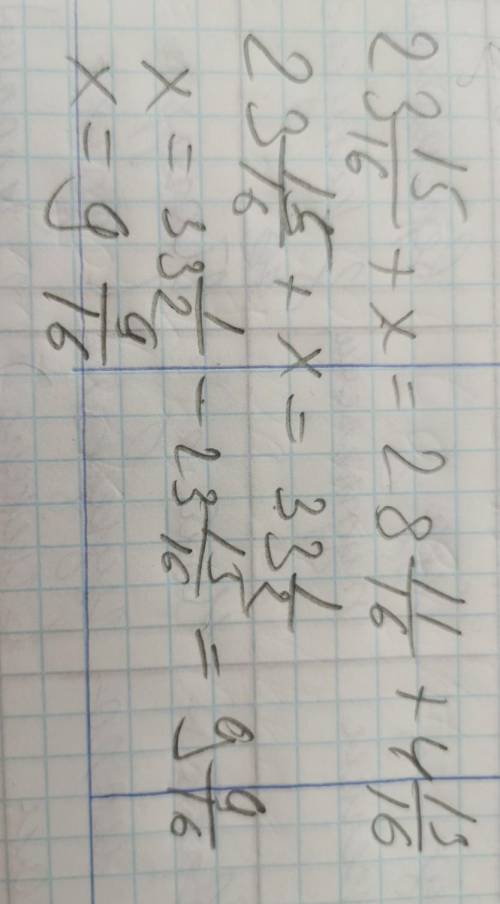 23 15/16 + x = 28 11/16 + 4 13/16
23 15/16 + x = 33 1/2
x = 33 1/2 - 23 15/16 = 9 9/16
x = 9 9/16